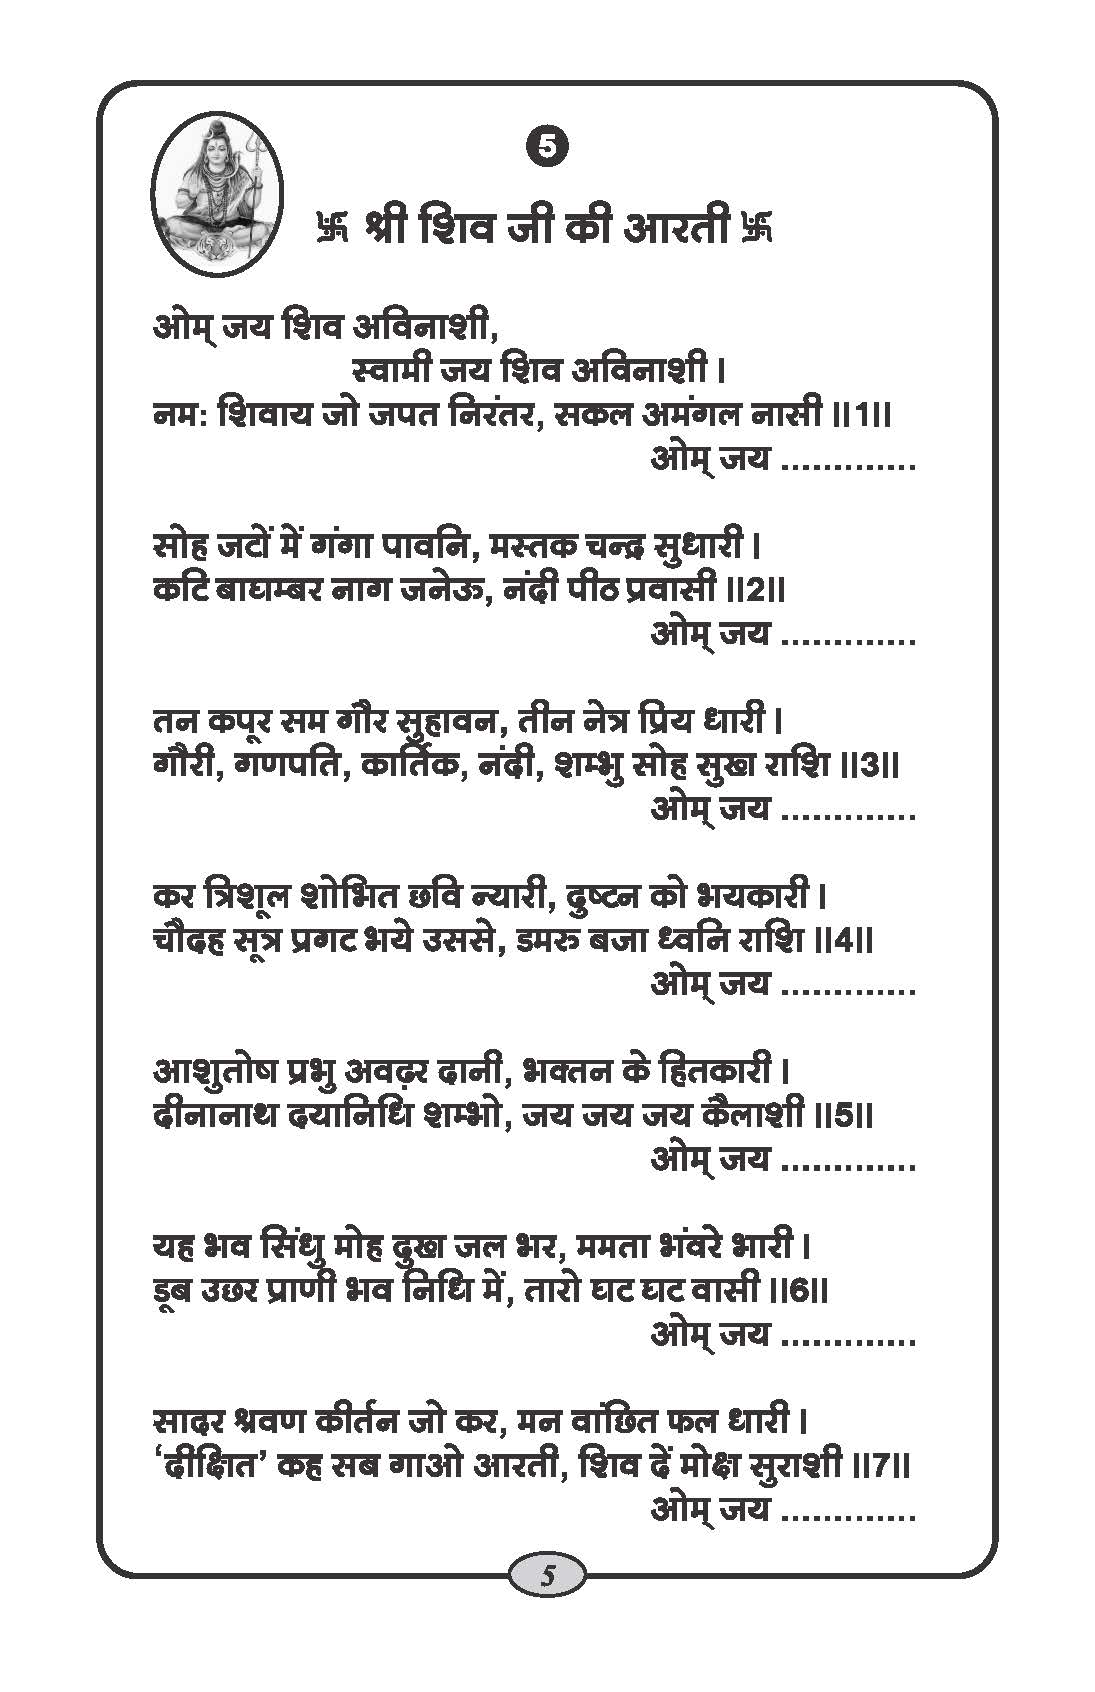 5
卐 श्री शिव जी की आरती 卐
ओम् जय शिव अविनाशी,
स्वामी जय शिव अविनाशी ।
नमः शिवाय जो जपत निरंतर, सकल अमंगल नासी ।।1।।
ओम् जय .............
सोह जटों में गंगा पावनि, मस्तक चन्द्र सुधारी ।
कटि बाघम्बर नाग जनेऊ, नंदी पीठ प्रवासी ।।2।।
ओम् जय .............
तन कपूर सम गौर सुहावन, तीन नेत्र प्रिय धारी ।
गौरी, गणपति, कार्तिक, नंदी, शम्भु सोह सुख राशि ।।3।।
ओम् जय .............
कर त्रिशूल शोभित छवि न्यारी, दुष्टन को भयकारी ।
चौदह सूत्र प्रगट भये उससे, डमरु बजा ध्वनि राशि ।।4।।
ओम् जय .............
आशुतोष प्रभु अवढ़र दानी, भक्तन के हितकारी ।
दीनानाथ दयानिधि शम्भो, जय जय जय कैलाशी ।।5।।
ओम् जय .............
यह भव सिंधु मोह दुख जल भर, ममता भंवरे भारी ।
डूब उछर प्राणी भव निधि में, तारो घट घट वासी ।।6।।
ओम् जय .............
सादर श्रवण कीर्तन जो कर, मन वांछित फल धारी ।
‘दीक्षित’ कह सब गाओ आरती, शिव दें मोक्ष सुराशी ।।7।।
ओम् जय .............
5